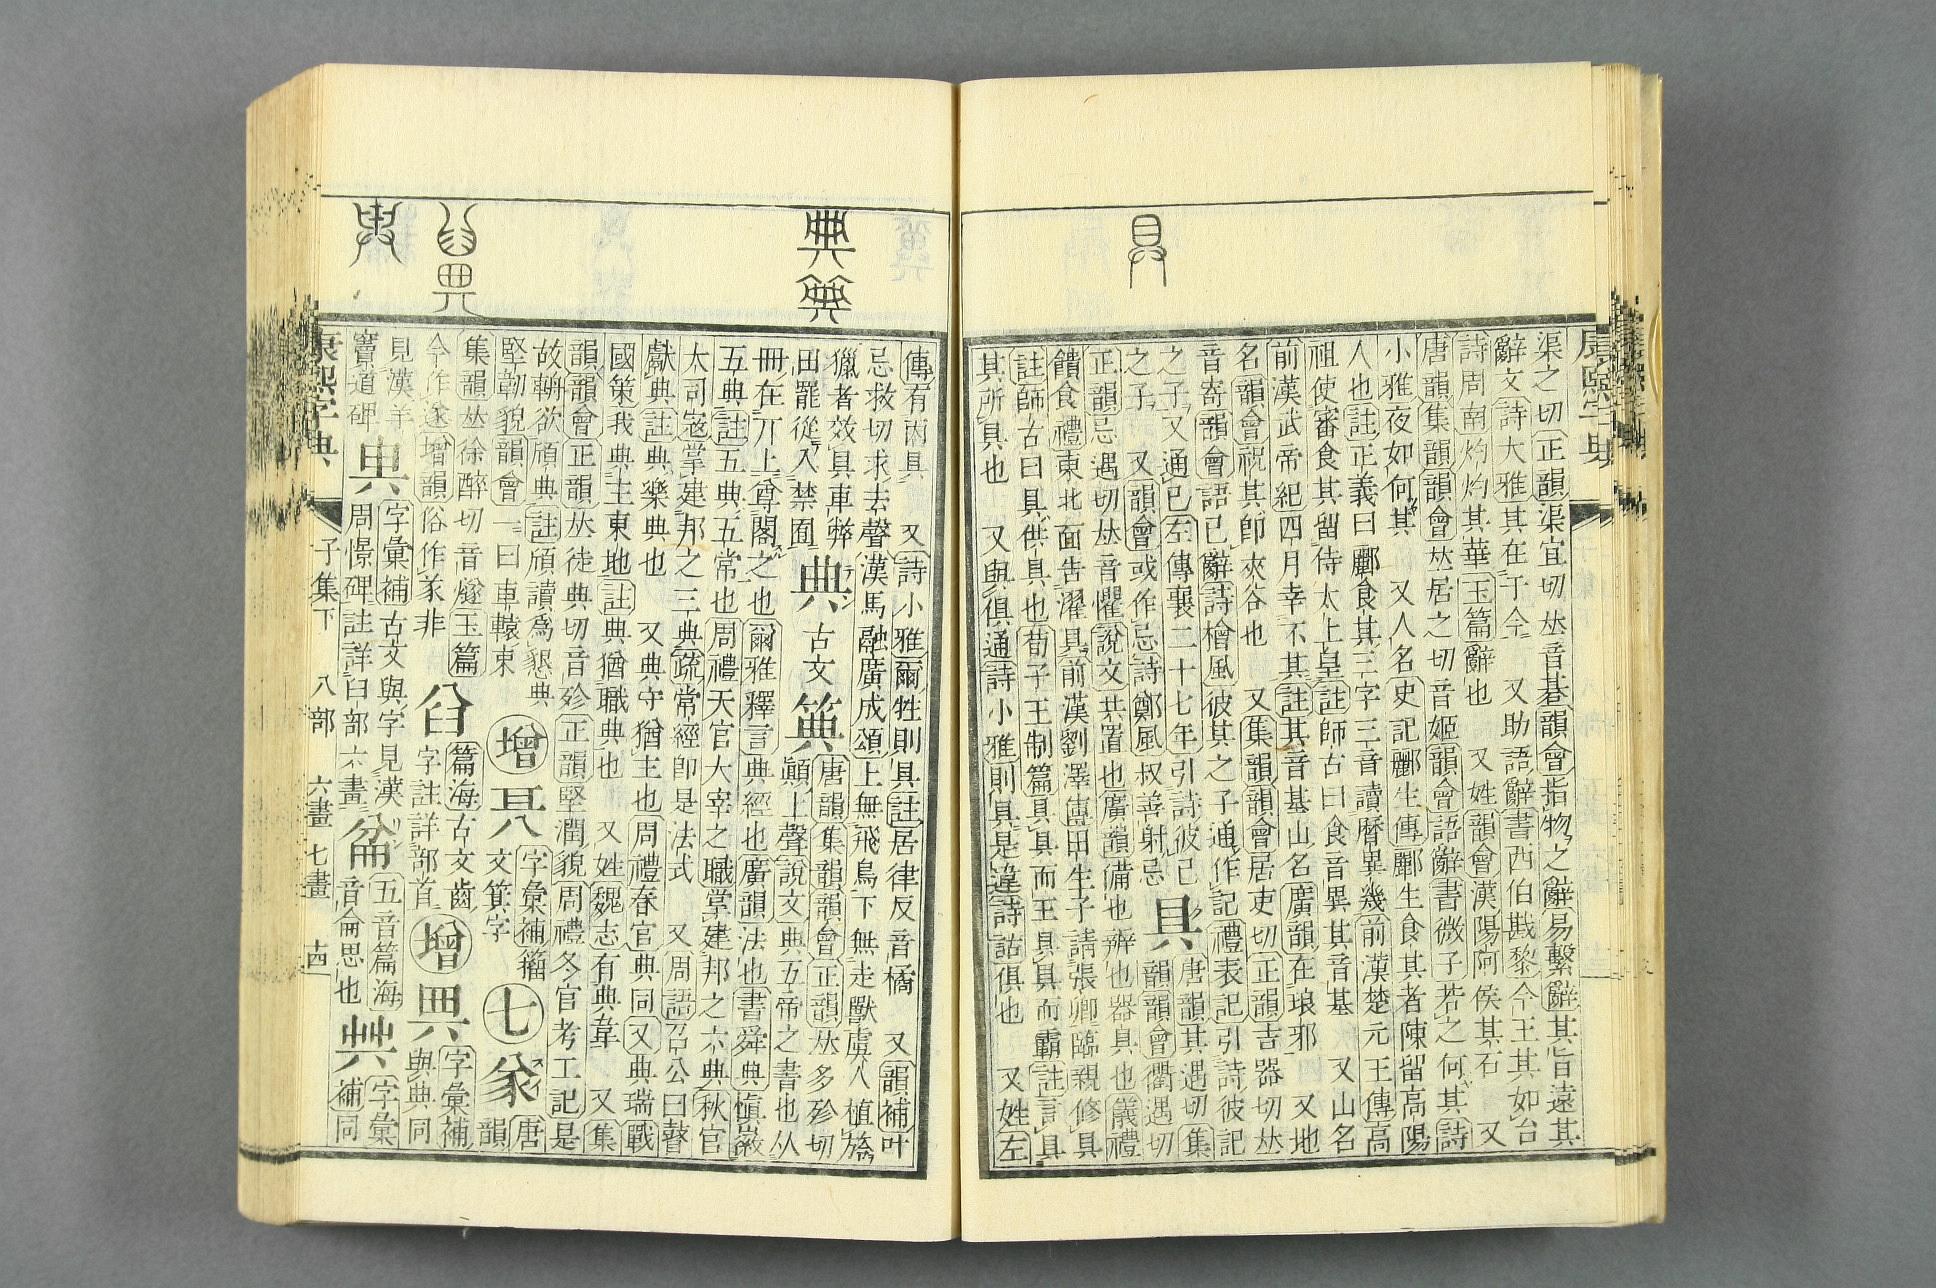 康熙字典
具
渠之切正韻渠宜切𠀤音碁韻會指物之辭易繫辭其旨遠其
辭文詩大雅其在于今 又助語辭書西伯戡黎今王其如台
詩周南灼灼其華玉篇辭也 又姓韻會漢陽阿侯其石 又
唐韻集韻韻會𠀤居之切音姬韻會語辭書微子若之何其詩
小雅夜如何其 又人名史記酈生傳酈生食其者陳留高陽
人也註正義曰酈食其三字三音讀曆異幾前漢楚元王傳高
祖使審食其留侍太上皇註師古曰食音異其音基 又山名
前漢武帝紀四月幸不其註其音基山名廣韻在琅邪 又地
名韻會祝其卽夾谷也 又集韻韻會居吏切正韻吉器切𠀤
音寄韻會語已辭詩檜風彼其之子通作記禮表記引詩彼記
之子又通已左傳襄二十七年引詩彼己
之子 又韻會或作忌詩鄭風叔善射忌
具
唐韻其遇切集
韻韻會衢遇切
正韻忌遇切𠀤音懼說文共置也廣韻備也辦也器具也儀禮
饋食禮東北面告濯具前漢劉澤傳田生子請張卿臨親修具
註師古曰具供具也荀子王制篇具具而王具具而霸註言具
其所具也 又與俱通詩小雅則具是違詩詁俱也 又姓左
典
傳有雨具 又詩小雅爾牲則具註居律反音橘 又韻補叶
忌救切求去聲漢馬融廣成頌上無飛鳥下無走獸虞人植旍
獵者效具車弊
田罷從入禁囿
典古文
唐韻集韻韻會正韻𠀤多殄切
顚上聲說文典五帝之書也从
冊在丌上尊閣之也爾雅釋言典經也廣韻法也書舜典愼徽
五典註五典五常也周禮天官大宰之職掌建邦之六典秋官
太司寇掌建邦之三典疏常經卽是法式 又周語召公曰瞽
獻典註典樂典也 又典守猶主也周禮春官典同又典瑞戰
國策我典主東地註典猶職典也 又姓魏志有典韋 又集
韻韻會正韻𠀤徒典切音殄正韻堅潤貌周禮冬官考工記是
故輈欲頎典註頎讀爲懇典
堅韌貌韻會一曰車轅束
增
字彙補籀
文箕字
七㒸
唐
韻
集韻𠀤徐醉切音燧玉篇
今作遂增韻俗作㒸非
篇海古文齒
字註詳部首
增
字彙補
與典同
見漢羊
竇道碑
字彙補古文與字見漢
周憬碑註詳臼部六畫
五音篇海
音侖思也
字彙
補同
康熙字典 子集下 八部 六畫 七畫 十四